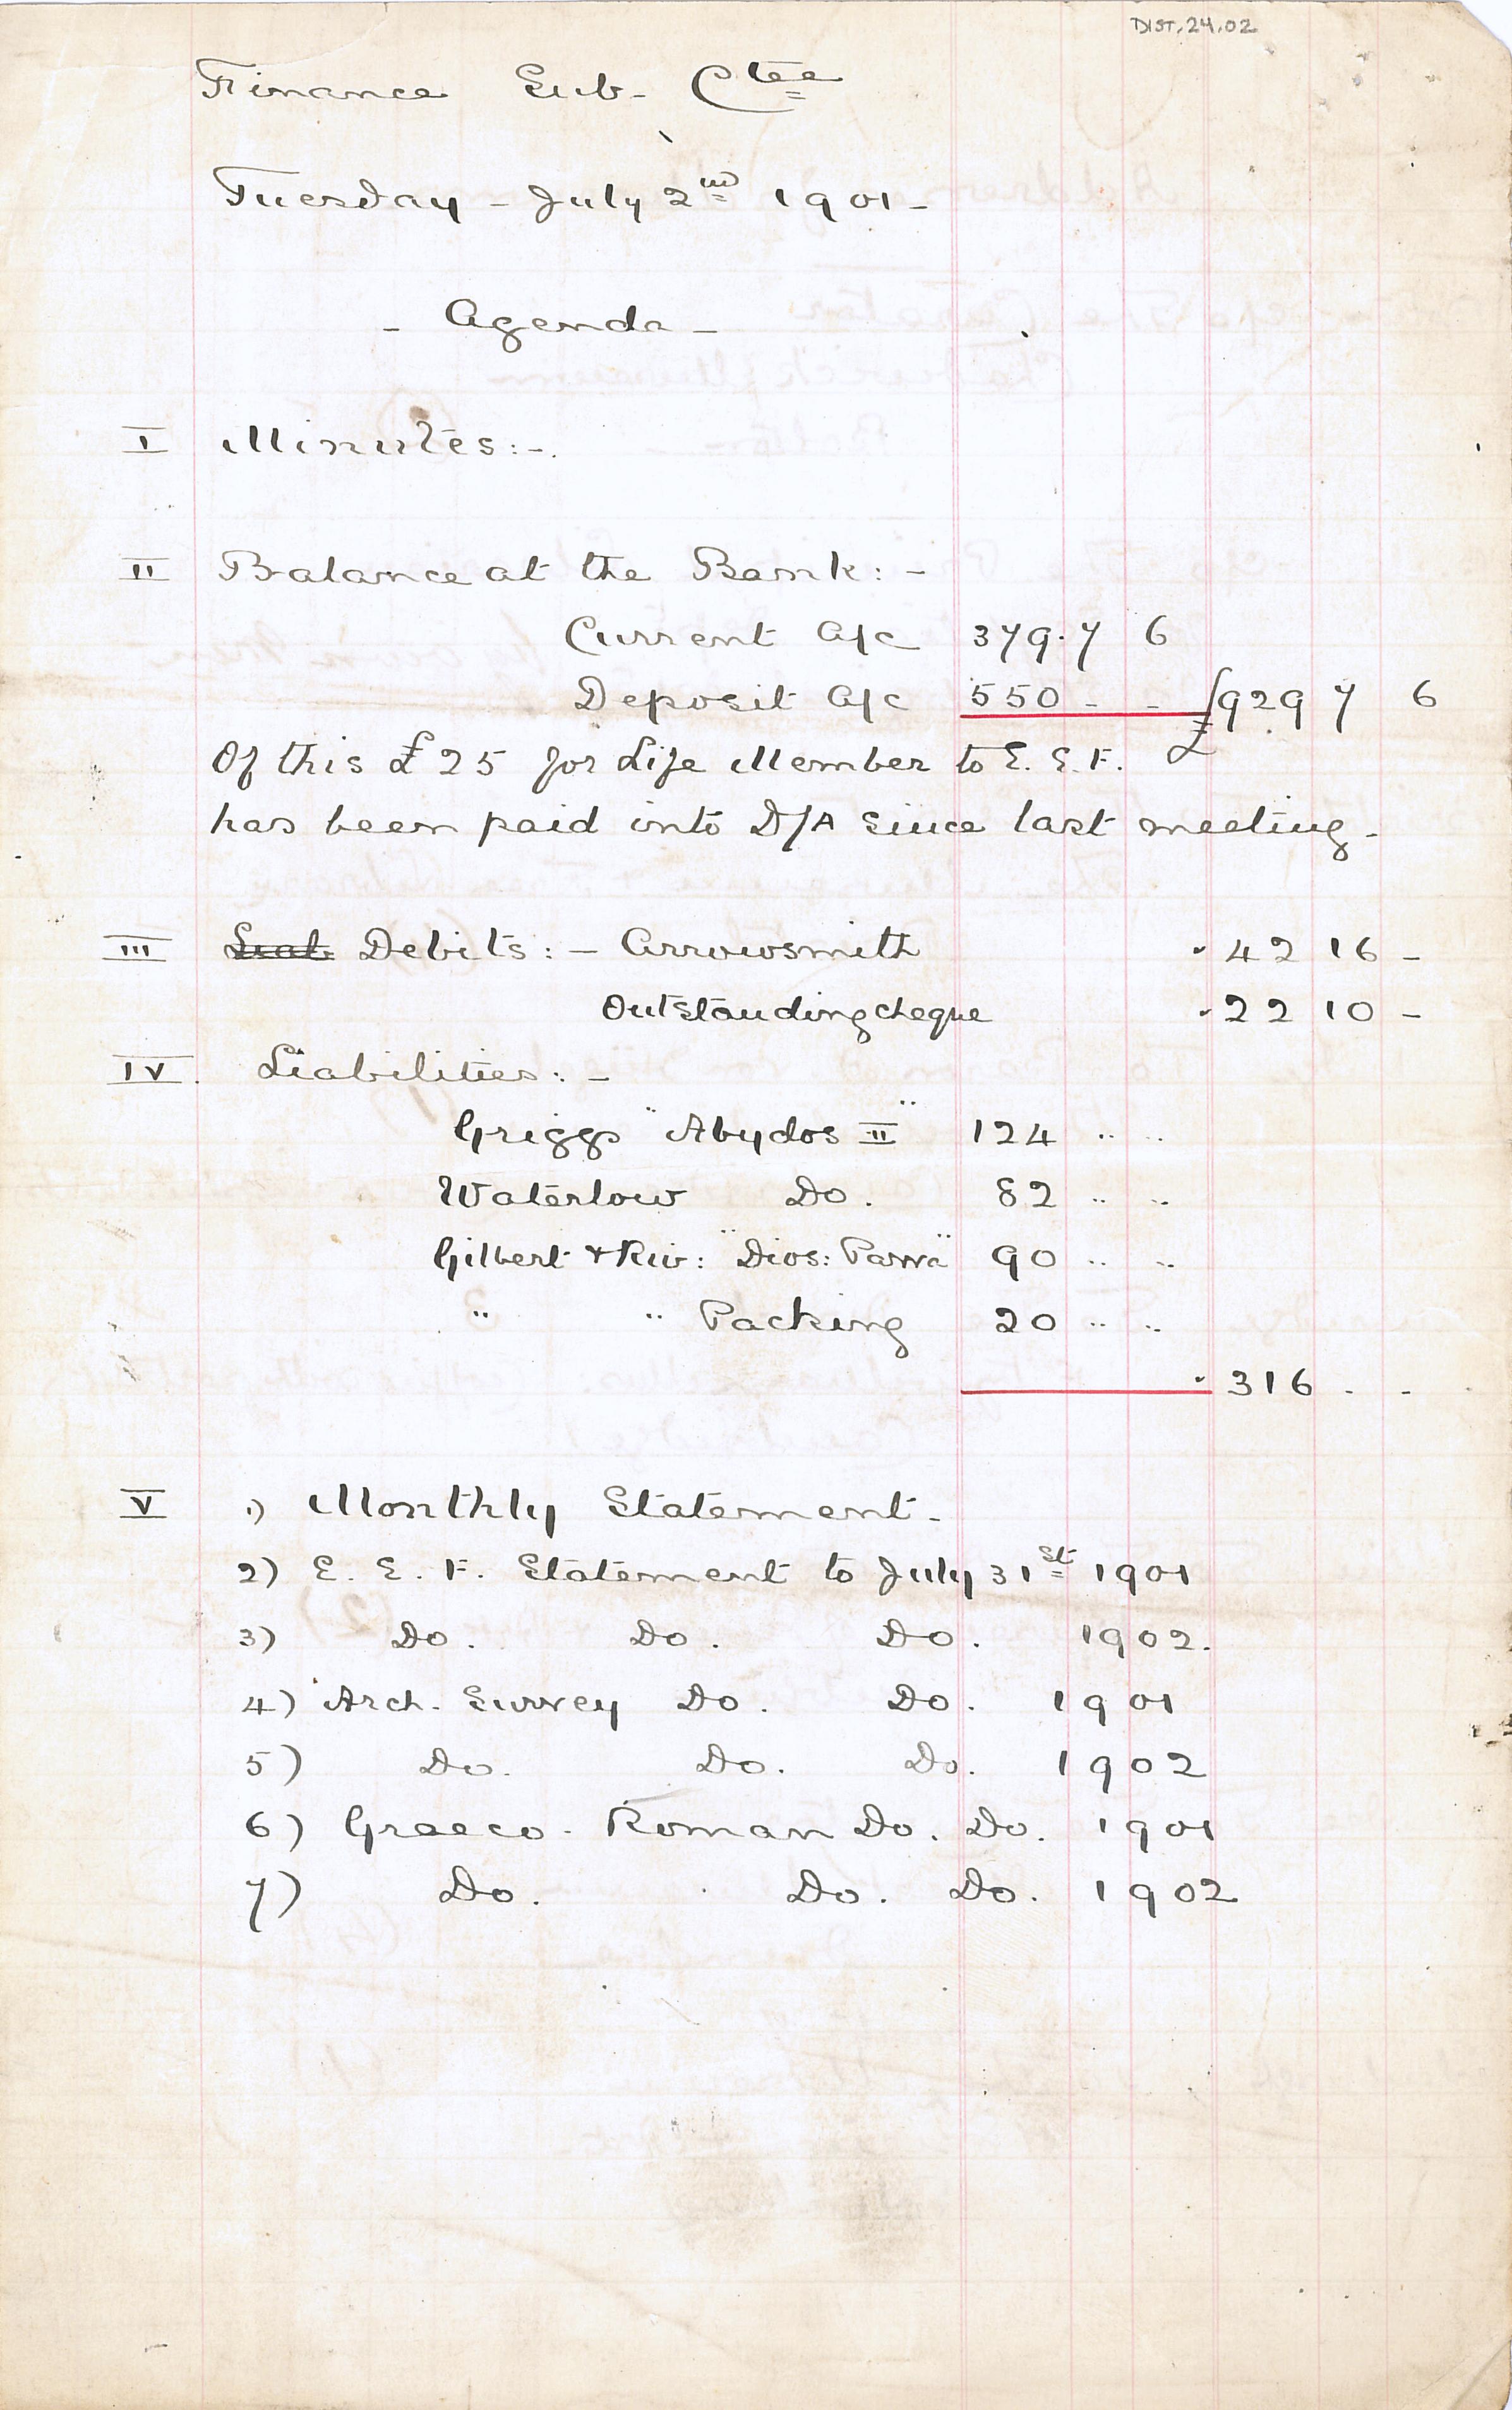 DIST.24.02
Finance Sub- Ctee
Tuesday - July 2nd 1901 -
- Agenda -
I Minutes: -.
II Balance at the Bank: -
Current A/c 379.7 6
Deposit A/c 550 - - £929 7 6
Of this £25 for Life Member to E.E.F.
has been paid into D/A since last meeting -
III Liab Debits: - Arrowsmith 42 16 -
Outstanding cheque 22 10 -
IV. Liabilities: -
Griggs "Abydos II" 124 " "
Waterlow Do. 82 " "
Gilbert & Riv: "Dios: Parva" 90 " "
" " Packing 20 " "
316 . -
V 1) Monthly Statement -
2) E. E. F. Statement to July 31st 1901
3) Do. Do. Do. 1902.
4) Arch. Survey Do. Do. 1901
5) Do. Do. Do. 1902
6) Graeco - Roman Do. Do. 1901
7) Do. Do. Do. 1902